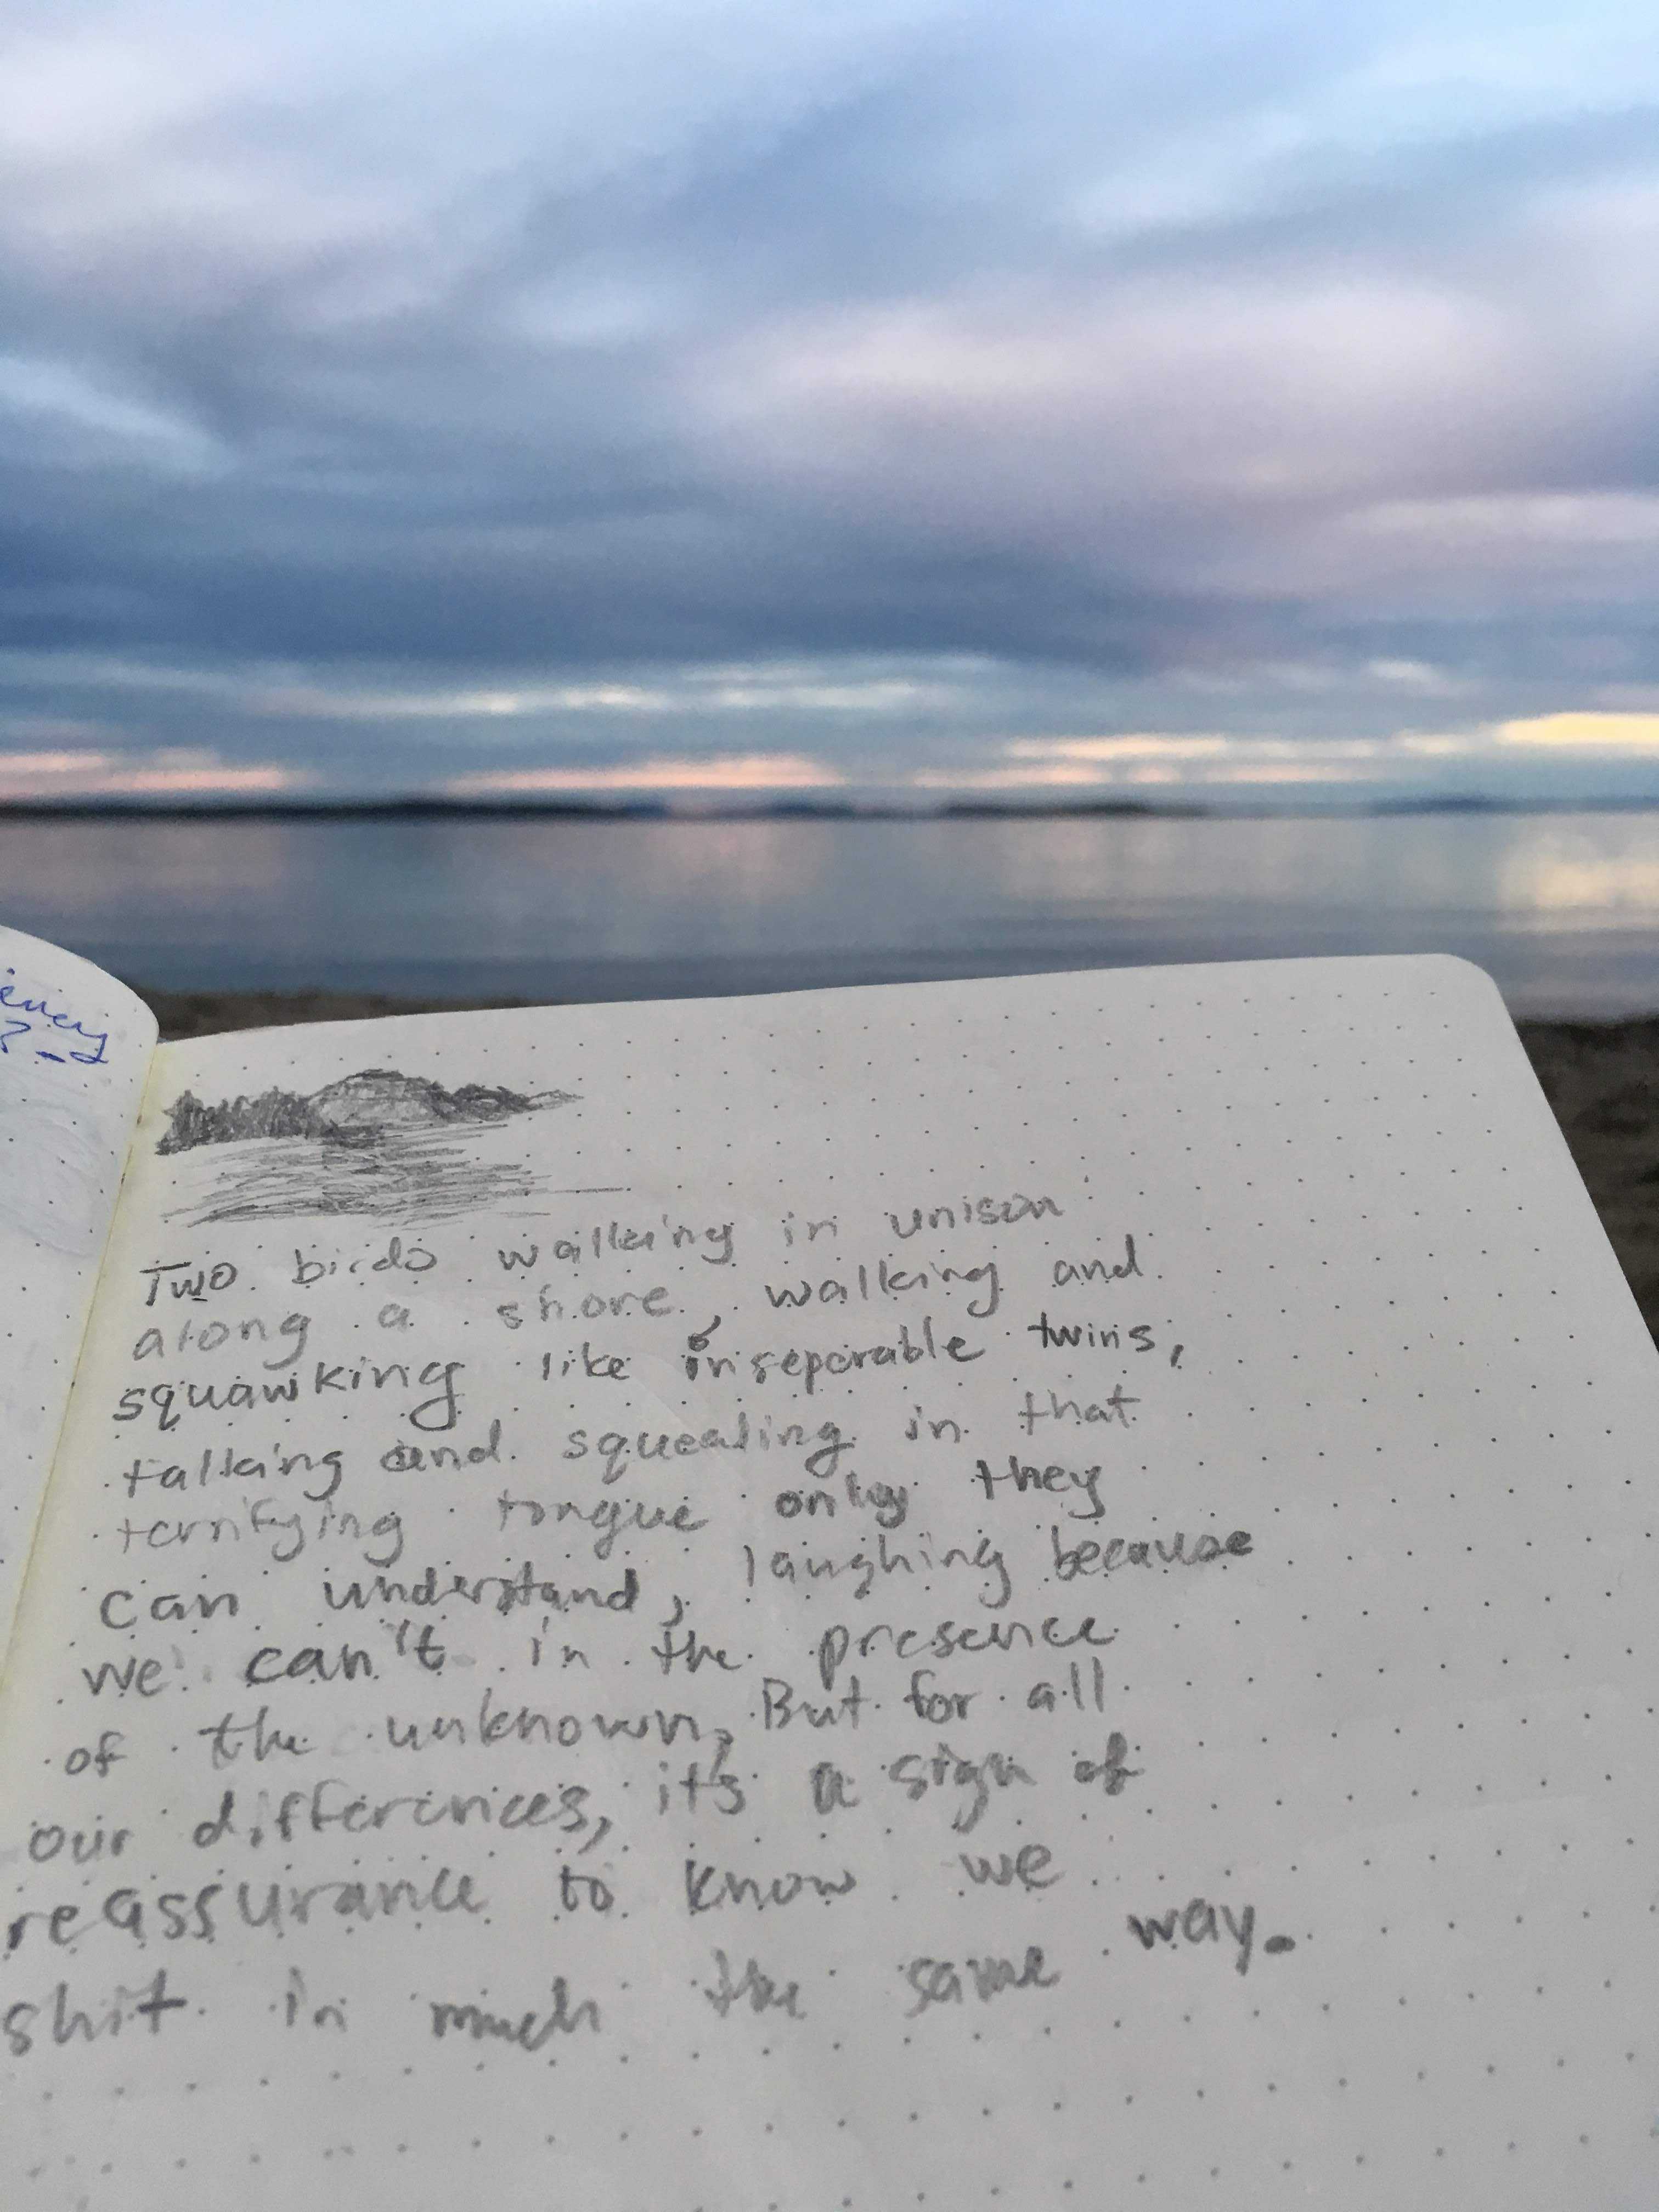 Two birds walking in unison
along a shore, walking and
squawking like inseparable twins,
talking and squealing in that
terrifying tongue only they
can understand, laughing because
we can't in the presence
of the unknown, But for all
our differences, it's a sign of
reassurance to know we
shit in much the same way.